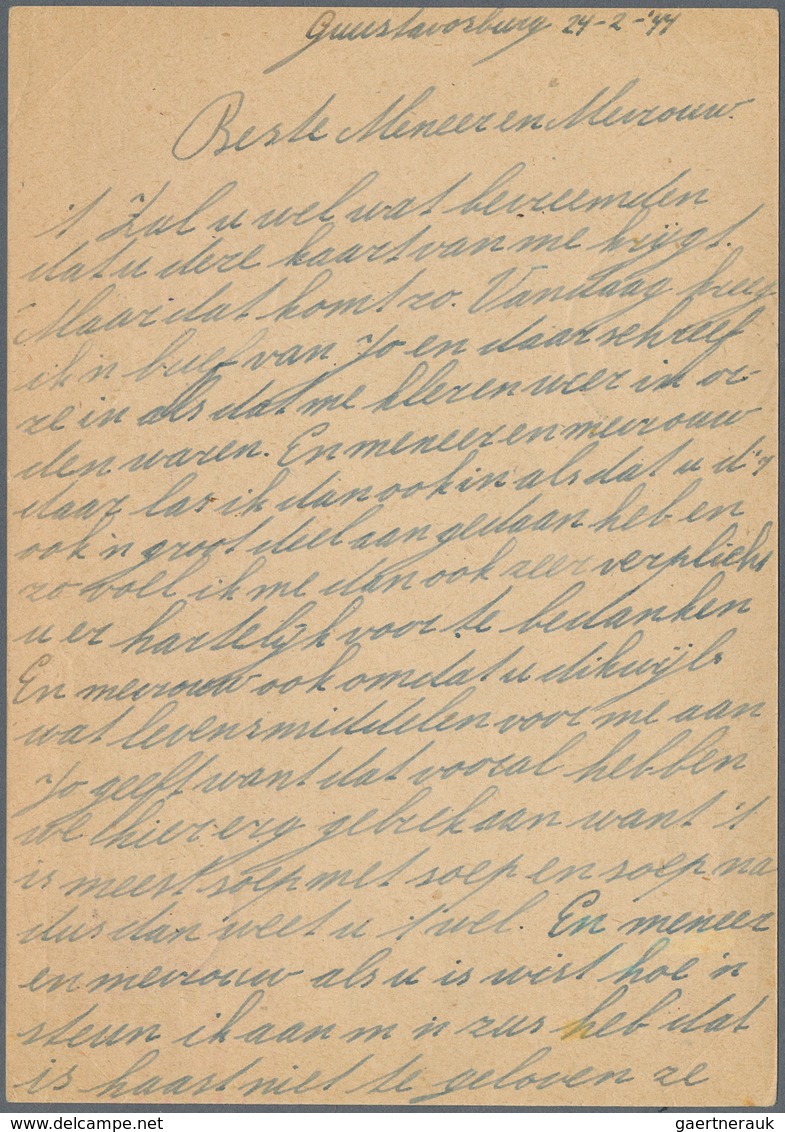 Guustavosburg 24-2-'44
Beste Meneer en Mevrouw.
't Zal u wel wat bevreemden
dat u deze kaart van me krijgt.
Maar dat komt zo. Vandaag kreeg
ik 'n brief van Jo en daar schreef
ze in als dat me kleren weer in or-
den waren. En meneer en mevrouw
daar las ik dan ook in als dat u d'r
ook 'n groot deel aan gedaan heb en
zo voel ik me dan ook zeer verplicht
u er hartelijk voor te bedanken
En mevrouw ook omdat u dikwijls
wat levensmiddelen voor me aan
Jo geeft want dat vooral hebben
we hier erg gebrek aan want 't
is meest soep met soep en soep na
dus dan weet u 't wel. En meneer
en mevrouw als u is wist hoe 'n
steun ik aan m'n zus heb dat
is haast niet te geloven ze
delcampe.net
gaertnerauk